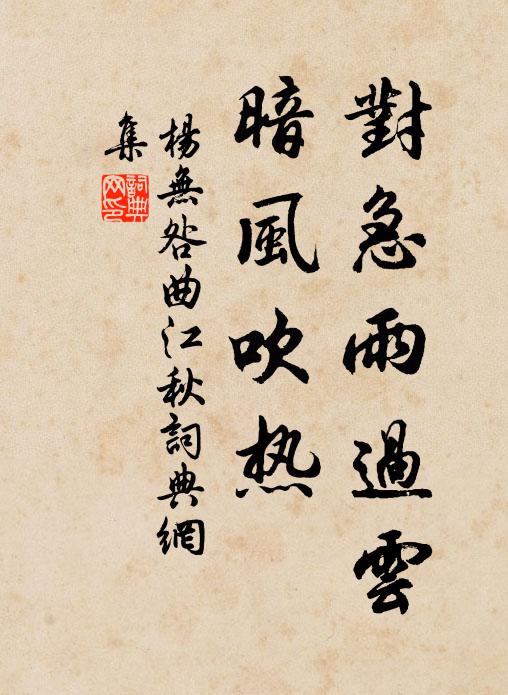 對急雨過雲
暗風吹热
楊無咎曲江秋詞典網
集
詞典網印